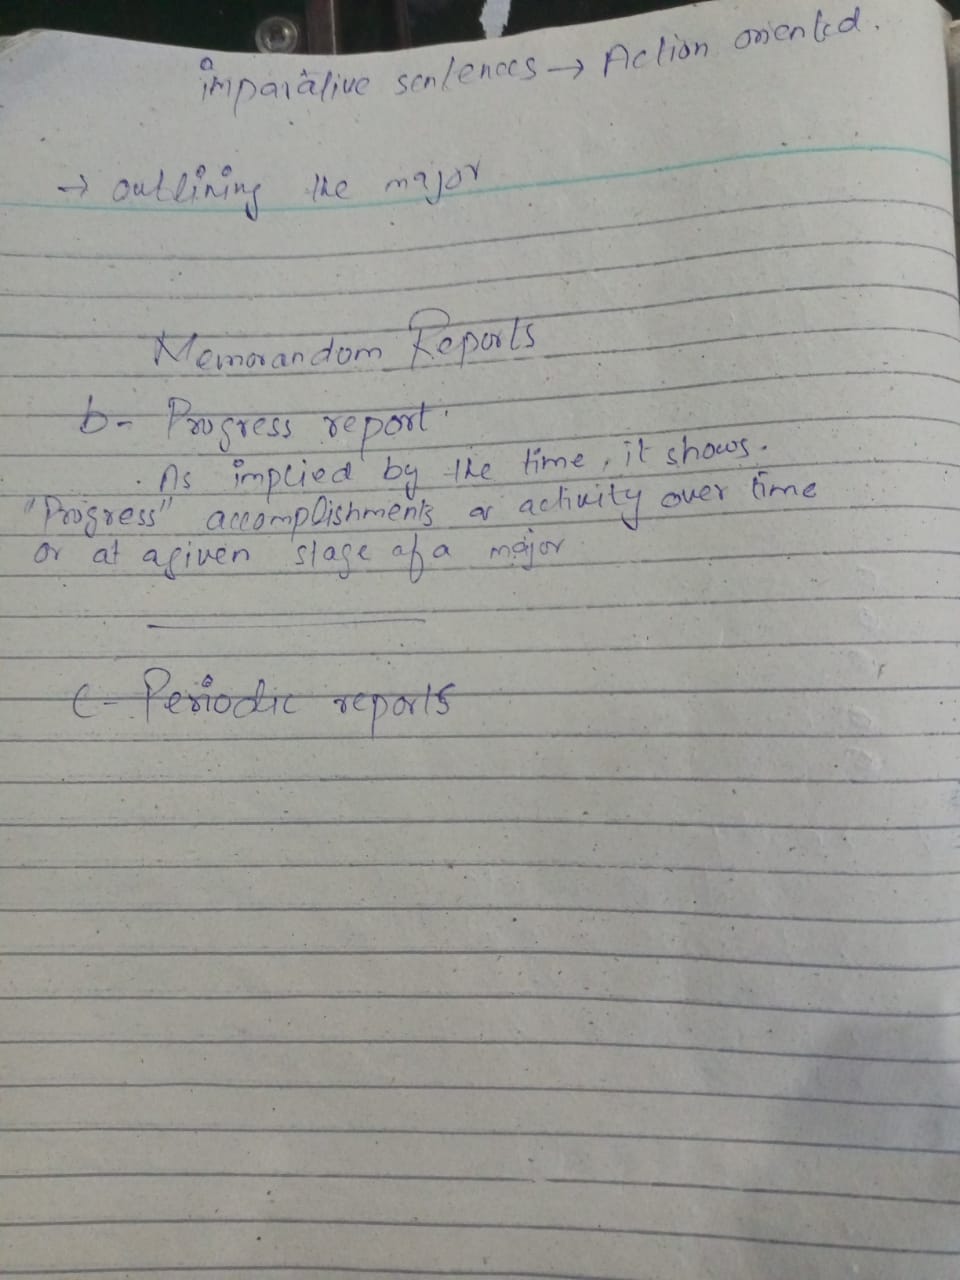 imparative sentences → Action oriented.
→ outlining the major
Memorandom Reports
b- Progress report.
. As implied by the time, it shows.
"Progress" accomplishments or activity over time
or at agiven stage of a major
c- Periodic reports